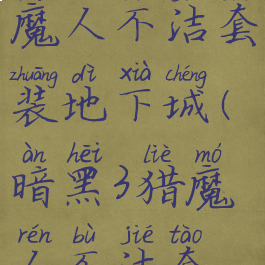 魔人不洁套
zhuāng dì xià chéng
装地下城(
àn hēi liè mó
暗黑3猎魔
rén bù jié tào
人不洁套